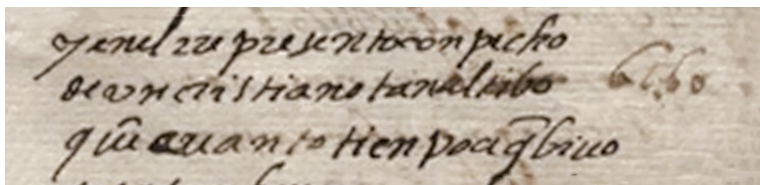 y en el rrepresento con pecho
de vn cristiano tan altibo bibo
q̃ quanto tienpo a q̃ biuo